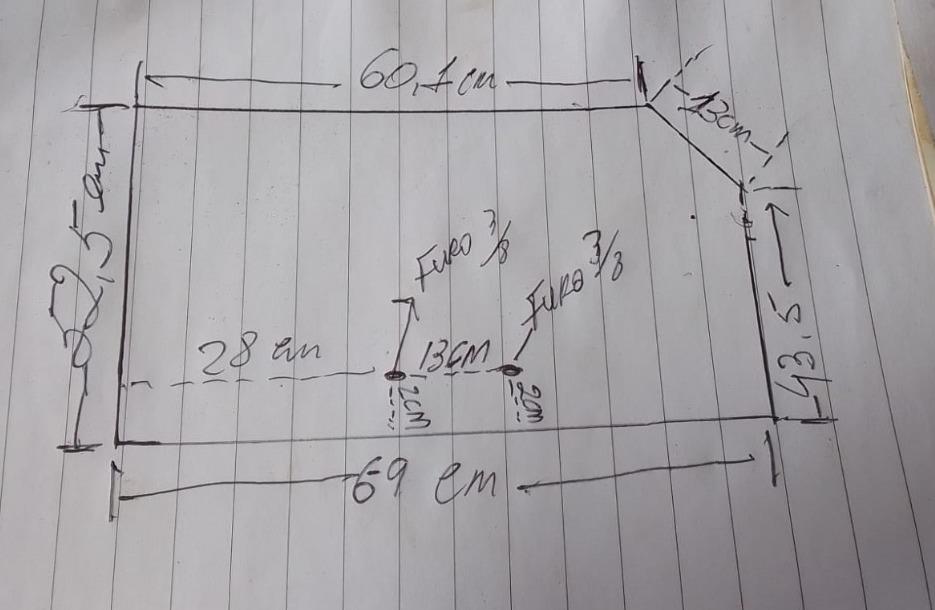 60,1cm
13cm
52,5 cm
Furo 3/8
Furo 3/8
28 cm
13cm
43,5
2cm
2cm
69 cm